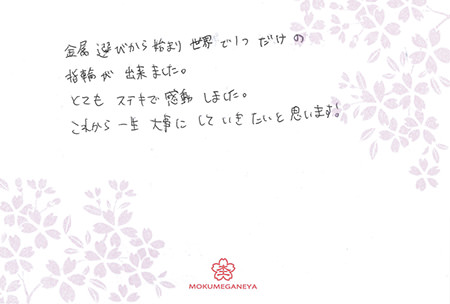 金属選びから始まり世界で1つだけの
指輪が出来ました。
とてもステキで感動しました。
これから一生大事にしていきたいと思います!
MOKUMEGANEYA